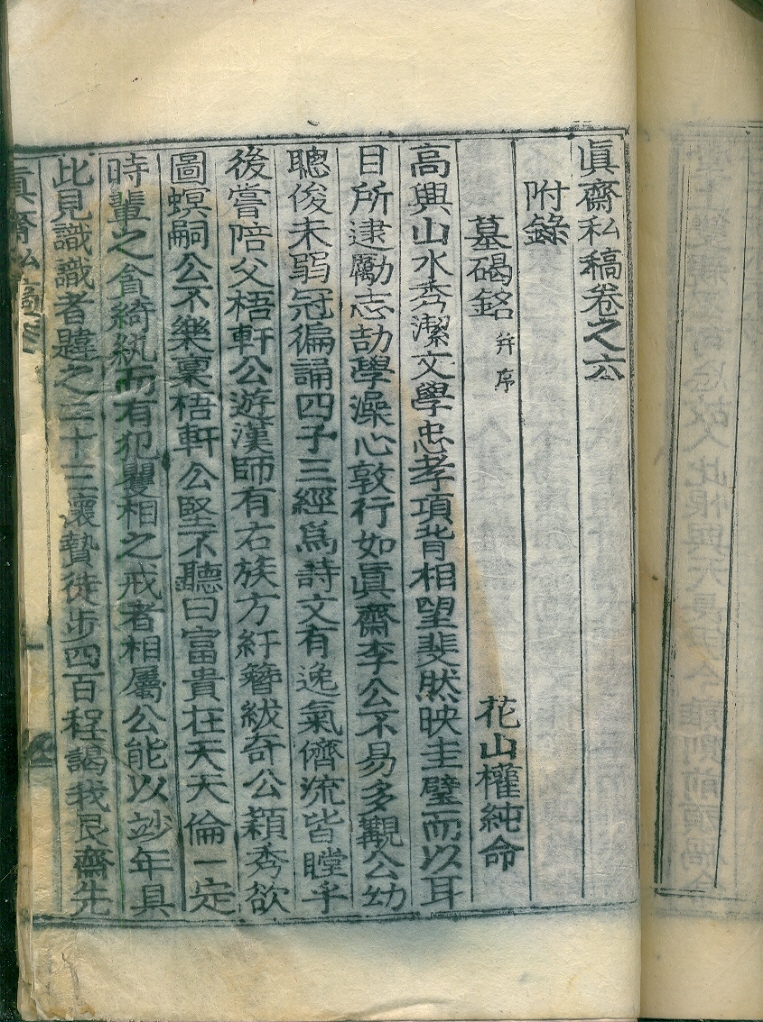 眞齋私稿卷之六
附錄
墓碣銘 幷序
花山權純命
高興山水秀潔文學忠孝項背相望斐然映圭璧而以耳
目所逮勵志劼學澡心敦行如眞齋李公不易多觀公幼
聰俊未弱冠徧誦四子三經爲詩文有逸氣儕流皆瞠乎
後嘗陪父梧軒公遊漢師有右族方紆簪紱奇公穎秀欲
圖螟嗣公不樂稟梧軒公堅不聽曰富貴在天天倫一定
時輩之貪綺紈而有犯矍相之戒者相屬公能以玅年具
此見識識者韙之二十三瀼贄徒步四百程謁我艮齋先
眞齋私稿卷